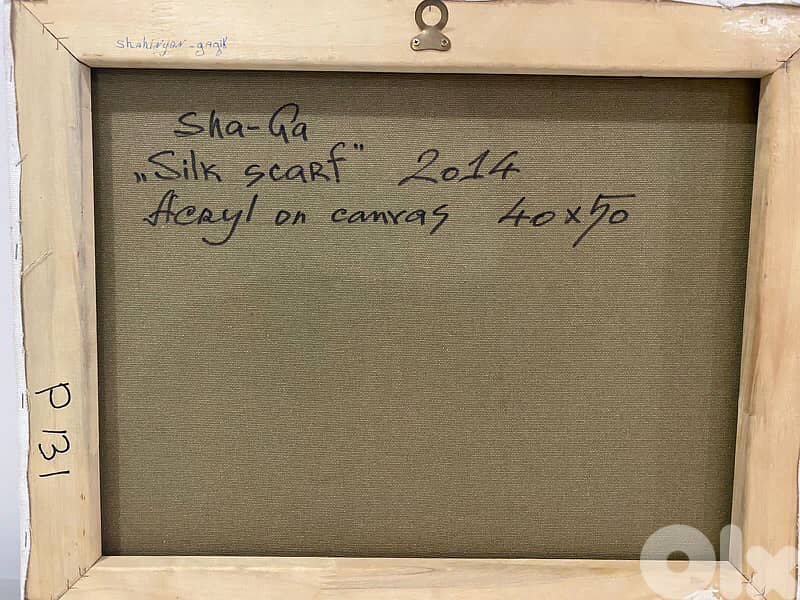 shahinyan-gagik
Sha-Ga
„Silk scarf” 2014
Acryl on canvas 40x50
P 131
olx